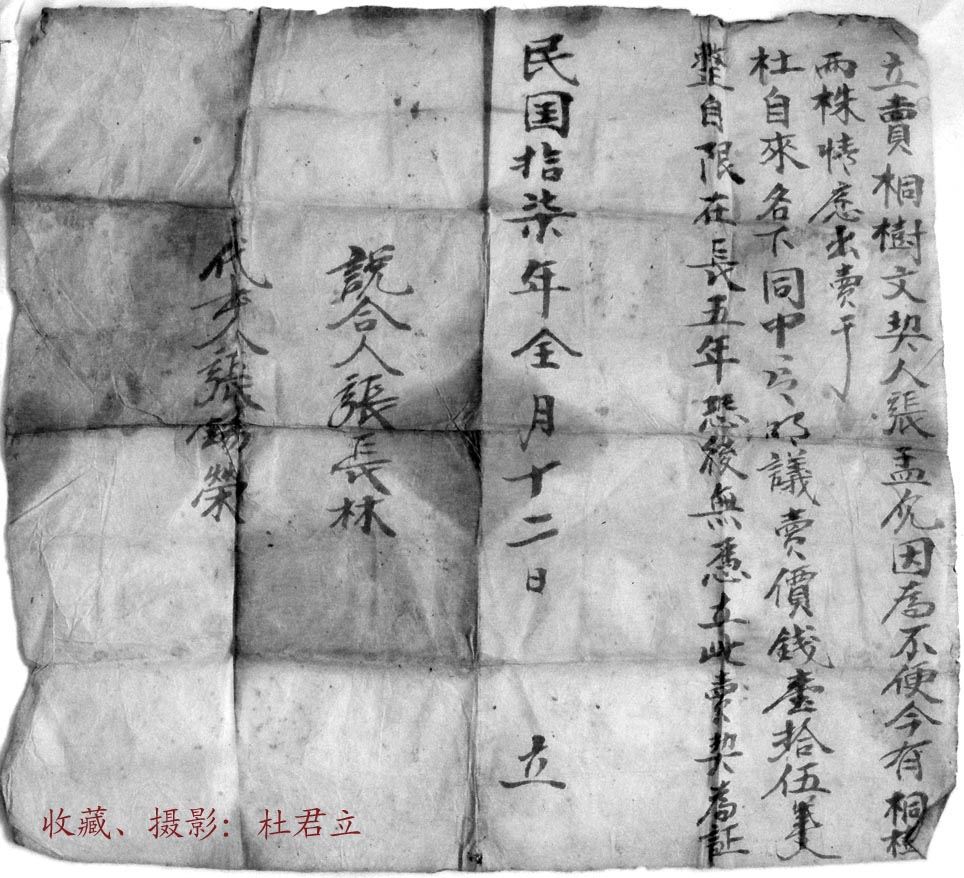 立賣桐樹文契人張孟允因為不便今有桐樹
兩株情愿出賣于
杜自來名下同中言明議賣價錢壹拾伍
整自限在長五年恐後無憑立此賣契為証
民国拾柒年全月十二日 立
說合人張長林
代字人張錫榮
收藏、摄影：杜君立